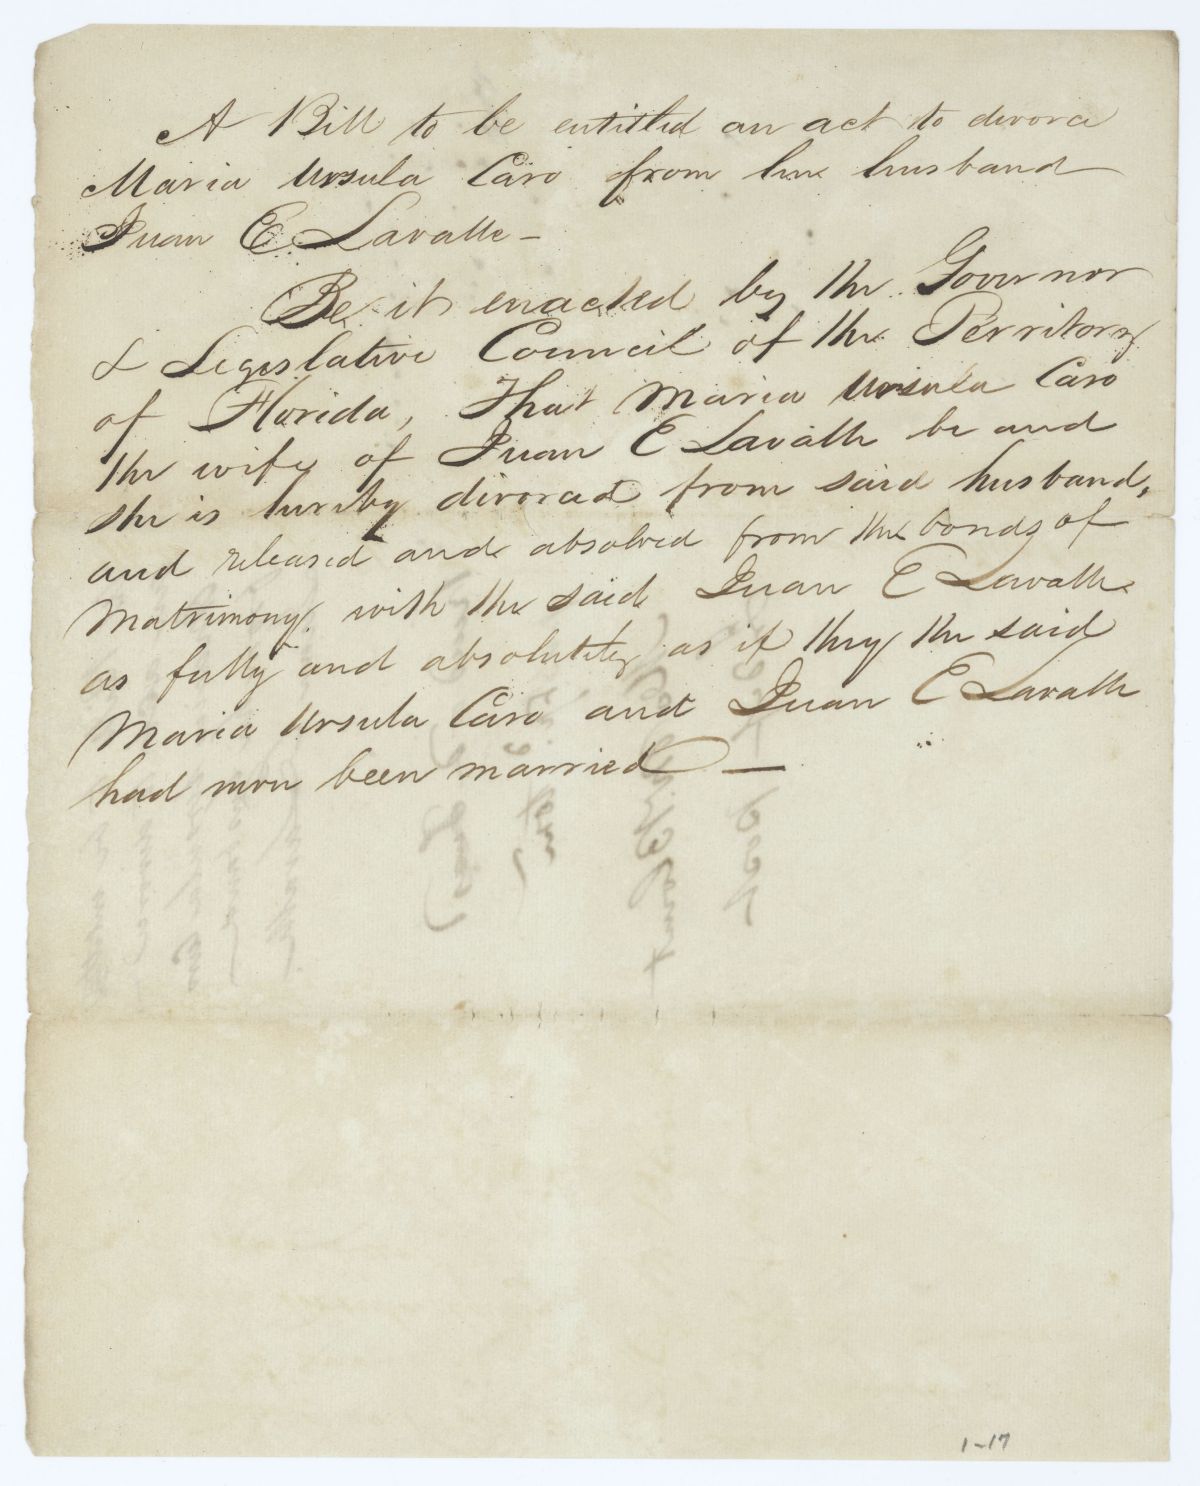 A Bill to be entitled an act to divorce
Maria Ursula Caro from her husband
Juan E. Lavalle -
Be it enacted by the Governor
& Legislative Council of the Territory
of Florida, That Maria Ursula Caro
the wife of Juan E Lavalle be and
she is hereby divorced from said husband,
and released and absolved from the bonds of
Matrimony with the said Juan E Lavalle
as fully and absolutely as if they the said
Maria Ursula Caro and Juan E Lavalle
had never been married —
1-17